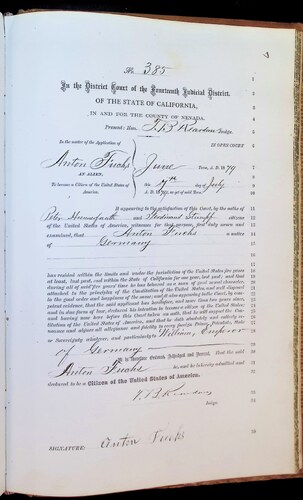 No 385
In the District Court of the Fourteenth Judicial District,
OF THE STATE OF CALIFORNIA,
IN AND FOR THE COUNTY OF NEVADA.
Present: Hon. T. B. Reardon Judge.
In the matter of the Application of
Anton Fuchs
AN ALIEN,
To become a Citizen of the United States of America.
IN OPEN COURT
June Term, A. D. 1879
this 7th day of July
A. D. 1879, as yet of said Term
It appearing to the satisfaction of this Court, by the oaths of
Peter and Ferdinand Stumpf citizens
of the United States of America, witnesses for that purpose, first duly sworn and
examined, that Anton Fuchs a native
of Germany
has resided within the limits and under the jurisdiction of the United States five years
at least, last past, and within the State of California for one year, last past; and that
during all of said five years' time he has behaved as a man of good moral character,
attached to the principles of the Constitution of the United States, and well disposed
to the good order and happiness of the same; and it also appearing to the Court, by com-
petent evidence, that the said applicant has heretofore, and more than two years since,
and in due form of law, declared his intention to become a citizen of the United States;
and having now here before this Court taken an oath, that he will support the Con-
stitution of the United States of America, and that he doth absolutely and entirely re-
nounce and abjure all allegiance and fidelity to every foreign Prince, Potentate, State
or Sovereignty whatever, and particularly to William, Emperor
of Germany
It is therefore Ordered, Adjudged and Decreed, That the said
Anton Fuchs be, and he is hereby admitted and
declared to be a Citizen of the United States of America.
T. B. Reardon
Judge
SIGNATURE: Anton Fuchs